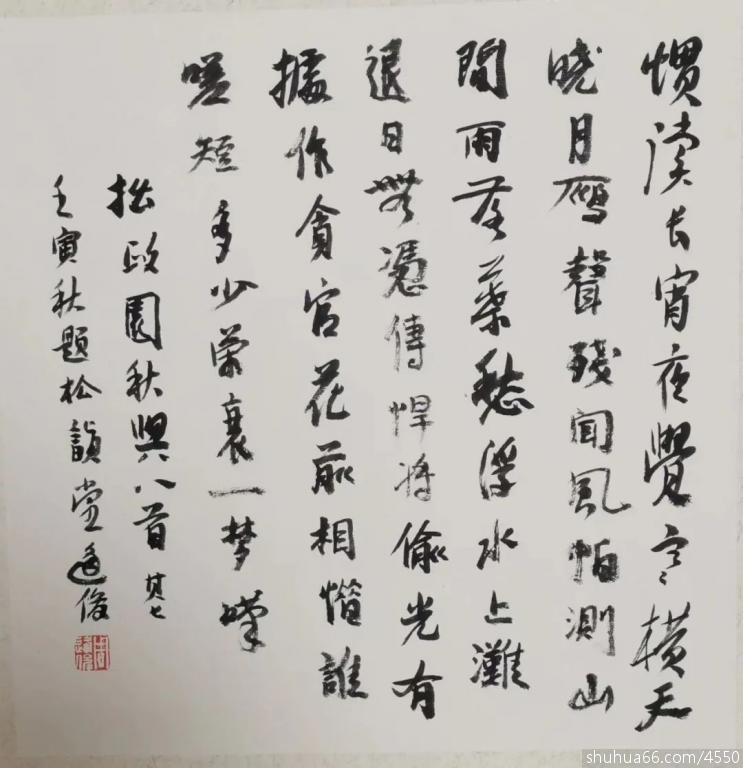 慣淒長宵夜覺寒横天
曉月雁聲殘聞風怕測山
間雨落葉愁浮水上灘
退日無憑傳悍將偷光有
據作貪官花前相惜誰
嗟短多少榮衰一梦嘆
拙政園秋興八首其七
壬寅秋題松韻堂 俊
shuhua66.com/4550